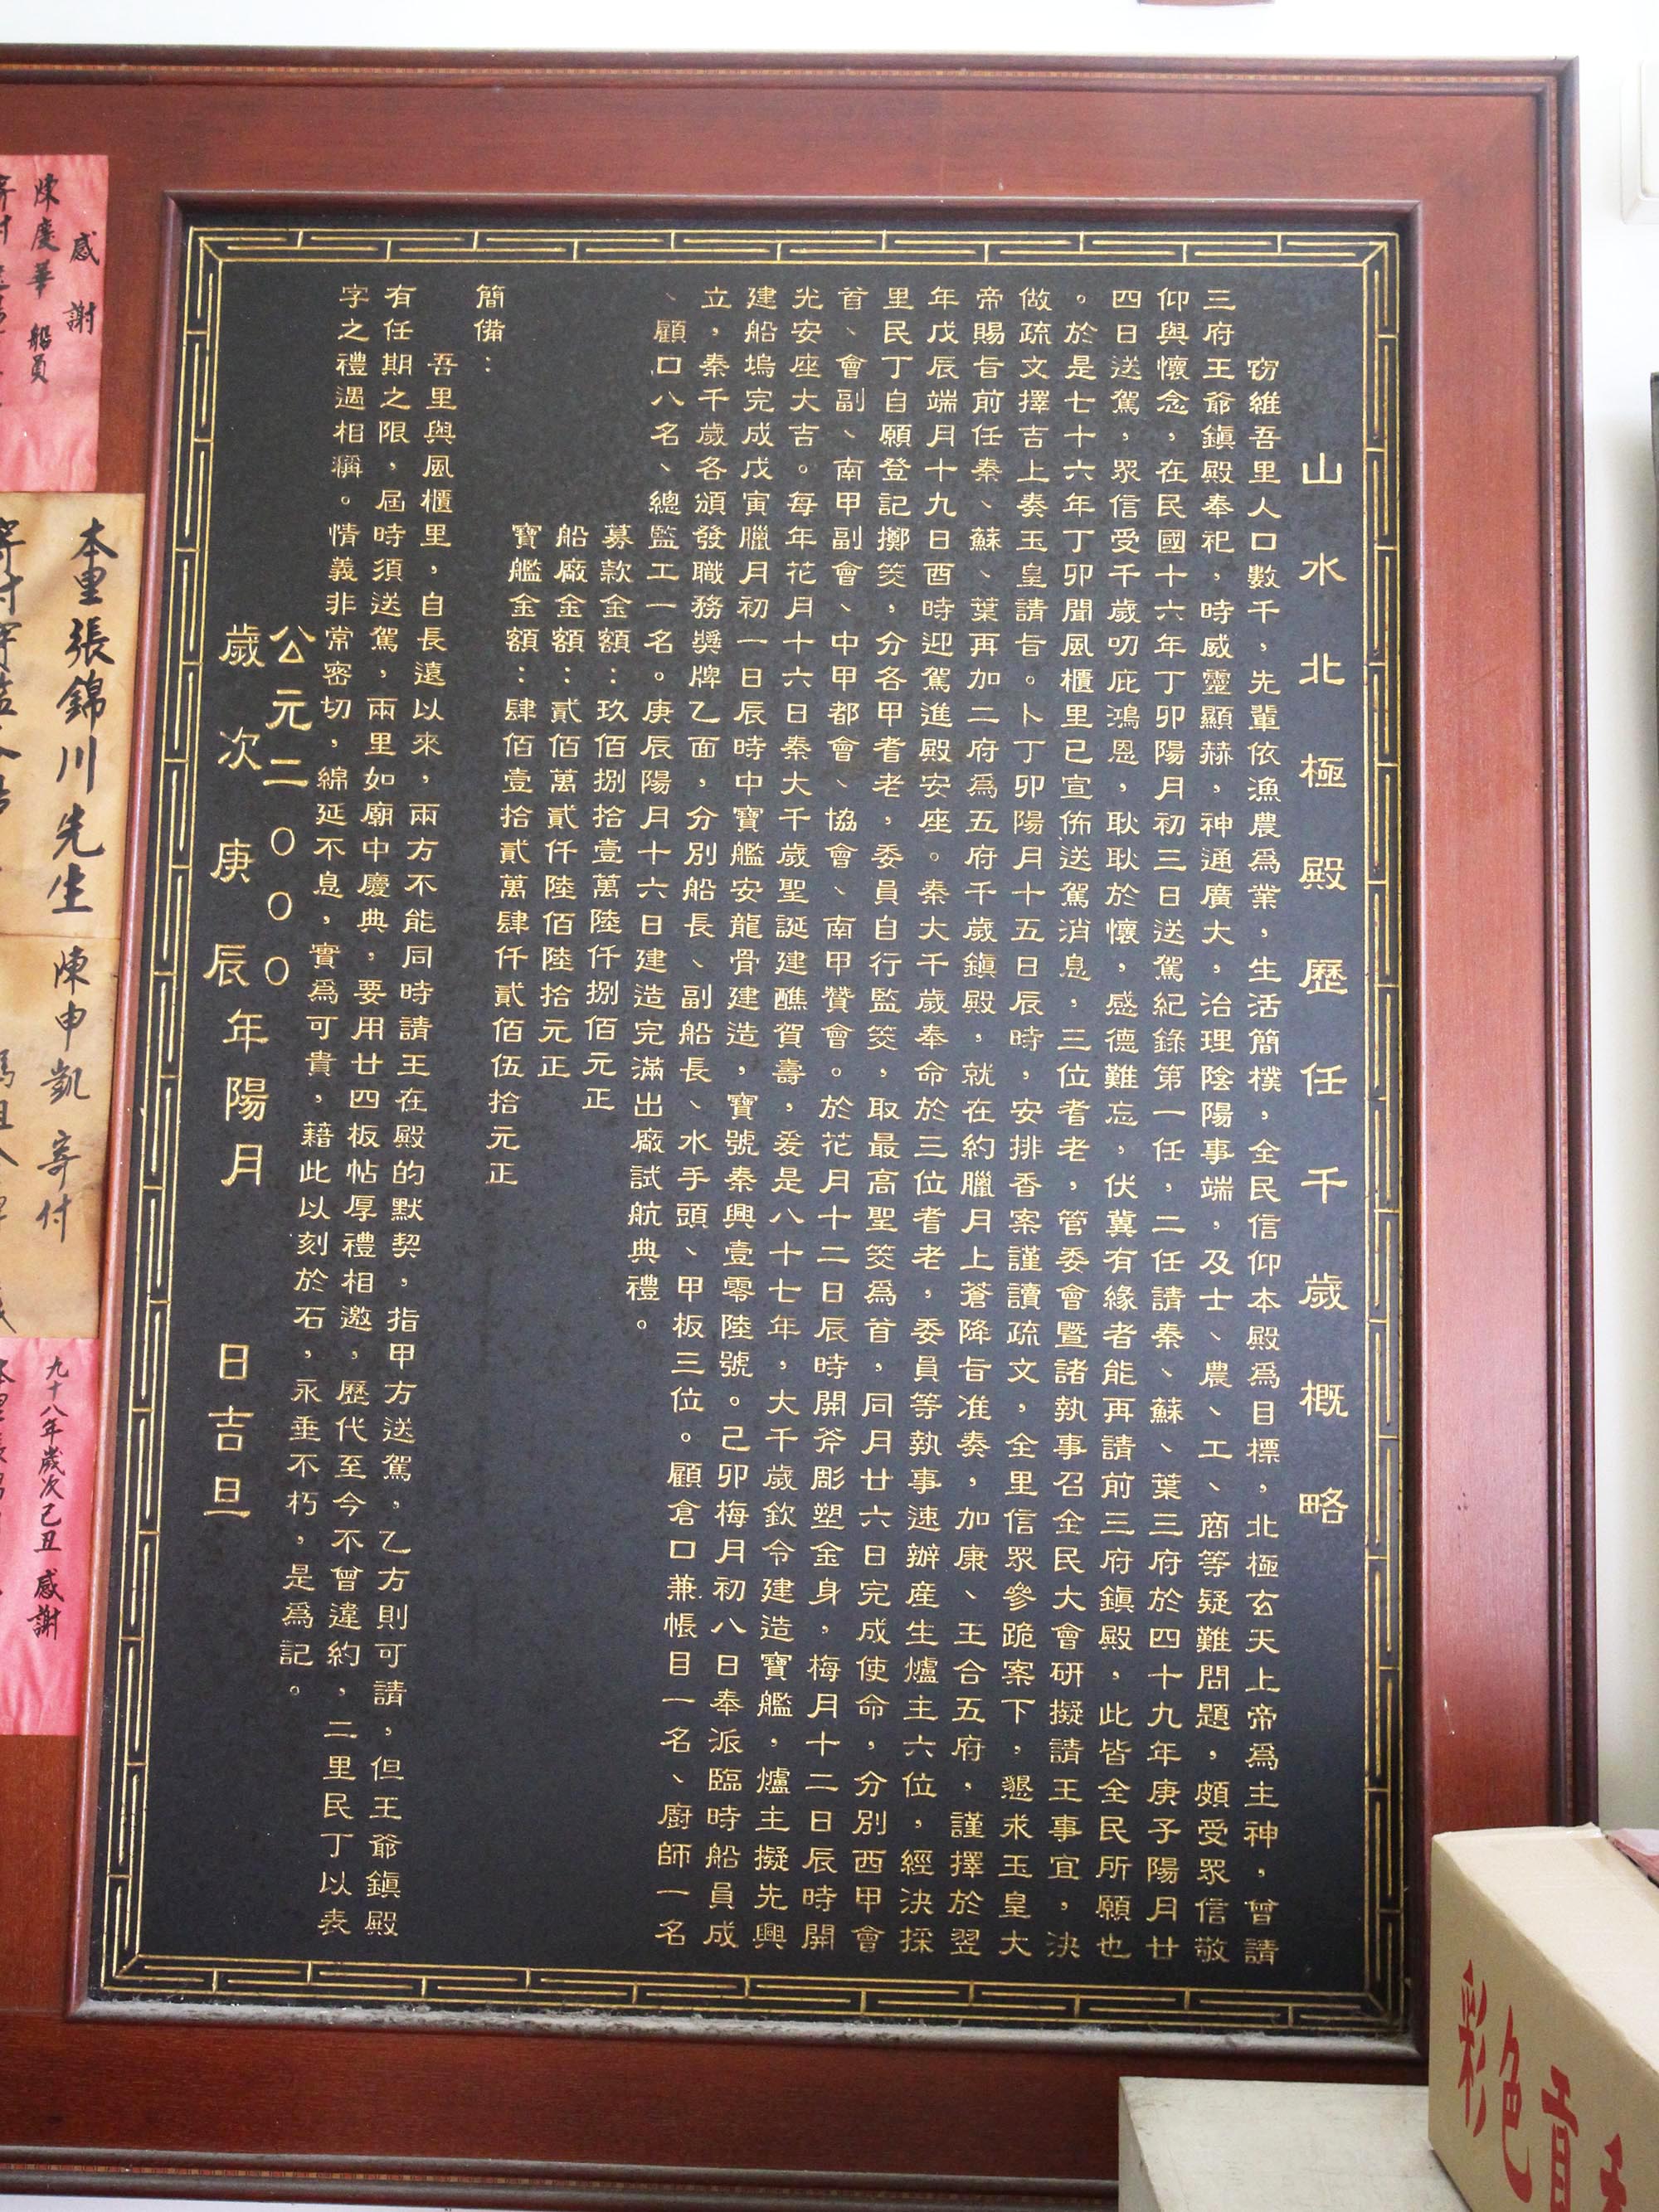 山水北極殿歷任千歲概略
窃維吾里人口數千，先輩依漁農為業，生活簡樸，全民信仰本殿為目標，北極玄天上帝為主神，曾請
三府王爺鎮殿奉祀，時威靈顯赫，神通廣大，治理陰陽事端，及士、農、工、商等疑難問題，頗受眾信敬
仰與懷念，在民國十六年丁卯陽月初三日送駕紀錄第一任，二任請秦、蘇、葉三府於四十九年庚子陽月廿
四日送駕，眾信受千歲叨庇鴻恩，耿耿於懷，感德難忘，伏冀有緣者能再請前三府鎮殿，此皆全民所願也
。於是七十六年丁卯聞風櫃里已宣佈送駕消息，三位耆老，管委會暨諸執事召全民大會研擬請王事宜，決
做疏文擇吉上奏玉皇請旨。卜丁卯陽月十五日辰時，安排香案謹讀疏文，全里信眾參跪案下，懇求玉皇大
帝賜旨前任秦、蘇、葉再加二府為五府千歲鎮殿，就在約臘月上蒼降旨准奏，加康、王合五府，謹擇於翌
年戊辰端月十九日酉時迎駕進殿安座。秦大千歲奉命於三位耆老，委員等執事速辦產生爐主六位，經決採
里民丁自願登記擲筊，分各甲耆老，委員自行監筊，取最高聖筊為首，同月廿六日完成使命，分別西甲會
首、會副、南甲副會、中甲都會、協會、南甲贊會。於花月十二日辰時開斧彫塑金身，梅月十二日辰時開
光安座大吉。每年花月十六日秦大千歲聖誕建醮賀壽，爰是八十七年，大千歲欽令建造寶艦，爐主擬先興
建船塢完成戊寅臘月初一日辰時中寶艦安龍骨建造，寶號秦興壹零陸號。己卯梅月初八日奉派臨時船員成
立，秦千歲各頒發職務獎牌乙面，分別船長、副船長、水手頭、甲板三位。顧倉口兼帳目一名、廚師一名
、顧口八名、總監工一名。庚辰陽月十六日建造完滿出廠試航典禮。
募款金額：玖佰捌拾壹萬陸仟捌佰元正
船廠金額：貳佰萬貳仟陸佰陸拾元正
寶艦金額：肆佰壹拾貳萬肆仟貳佰伍拾元正
簡備：
吾里與風櫃里，自長遠以來，兩方不能同時請王在殿的默契，指甲方送駕，乙方則可請，但王爺鎮殿
有任期之限，屆時須送駕，兩里如廟中慶典，要用廿四板帖厚禮相邀，歷代至今不曾違約，二里民丁以表
字之禮遇相稱。情義非常密切，綿延不息，實為可貴，藉此以刻於石，永垂不朽，是為記。
公元二〇〇〇
歲次庚辰年陽月 日吉旦
感謝
陳慶華 船員
本里張錦川先生 陳申凱 寄付
九十八年歲次己丑 感謝
彩色貢